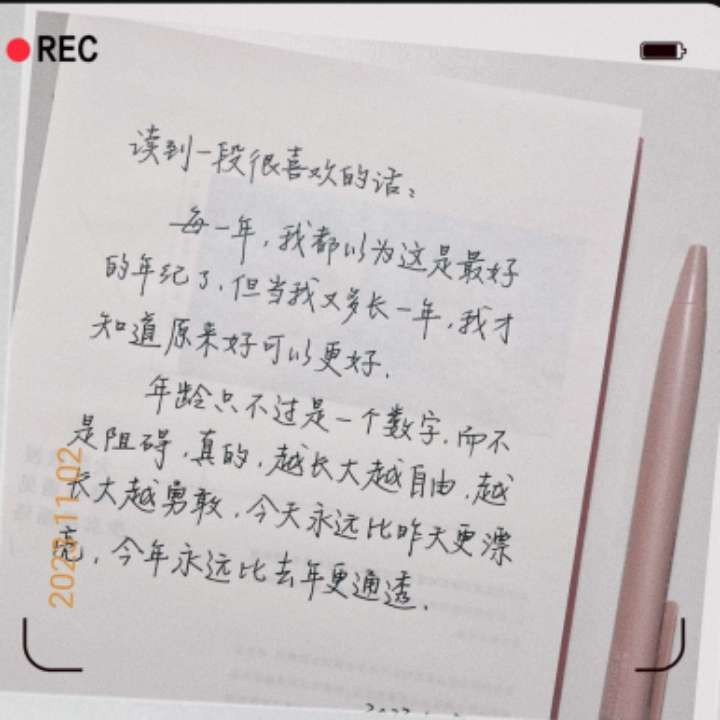 REC
读到一段很喜欢的话：
每一年，我都以为这是最好
的年纪了，但当我又多长一年，我才
知道原来好可以更好。
年龄只不过是一个数字，而不
是阻碍，真的，越长大越自由，越
长大越勇敢，今天永远比昨天更漂
亮，今年永远比去年更通透。